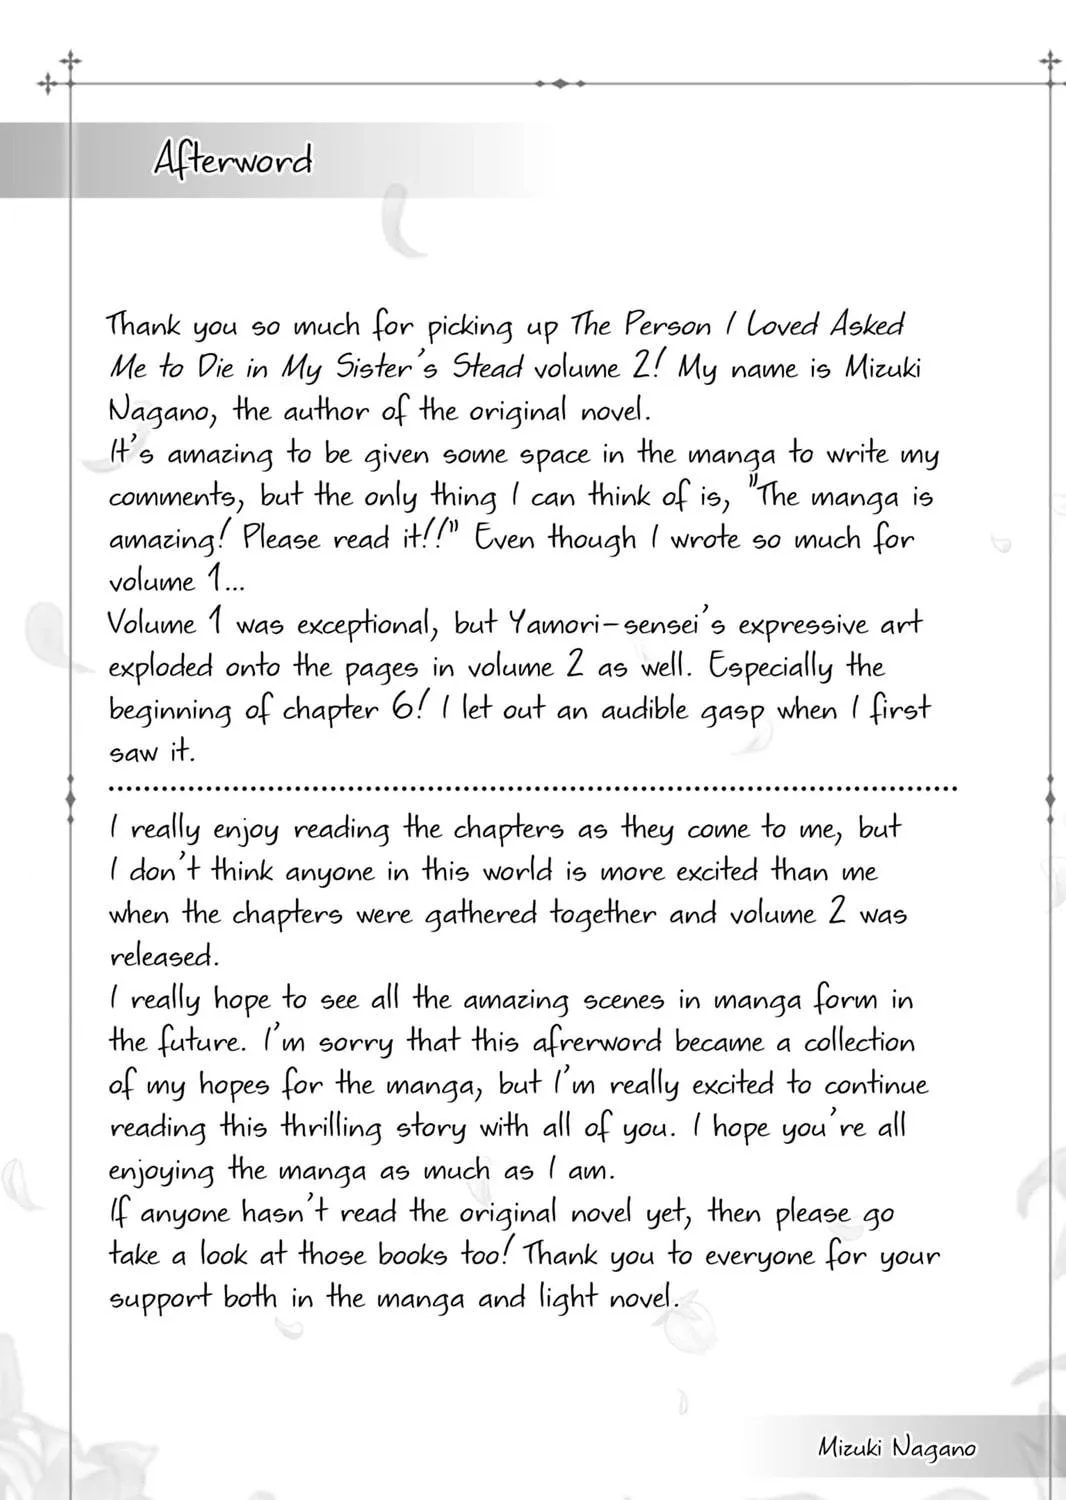 Afterword
Thank you so much for picking up The Person I Loved Asked
Me to Die in My Sister's Stead volume 2! My name is Mizuki
Nagano, the author of the original novel.
It's amazing to be given some space in the manga to write my
comments, but the only thing I can think of is, "The manga is
amazing! Please read it!!" Even though I wrote so much for
volume 1...
Volume 1 was exceptional, but Yamori-sensei's expressive art
exploded onto the pages in volume 2 as well. Especially the
beginning of chapter 6! I let out an audible gasp when I first
saw it.
I really enjoy reading the chapters as they come to me, but
I don't think anyone in this world is more excited than me
when the chapters were gathered together and volume 2 was
released.
I really hope to see all the amazing scenes in manga form in
the future. I'm sorry that this afrerword became a collection
of my hopes for the manga, but I'm really excited to continue
reading this thrilling story with all of you. I hope you're all
enjoying the manga as much as I am.
If anyone hasn't read the original novel yet, then please go
take a look at those books too! Thank you to everyone for your
support both in the manga and light novel.
Mizuki Nagano